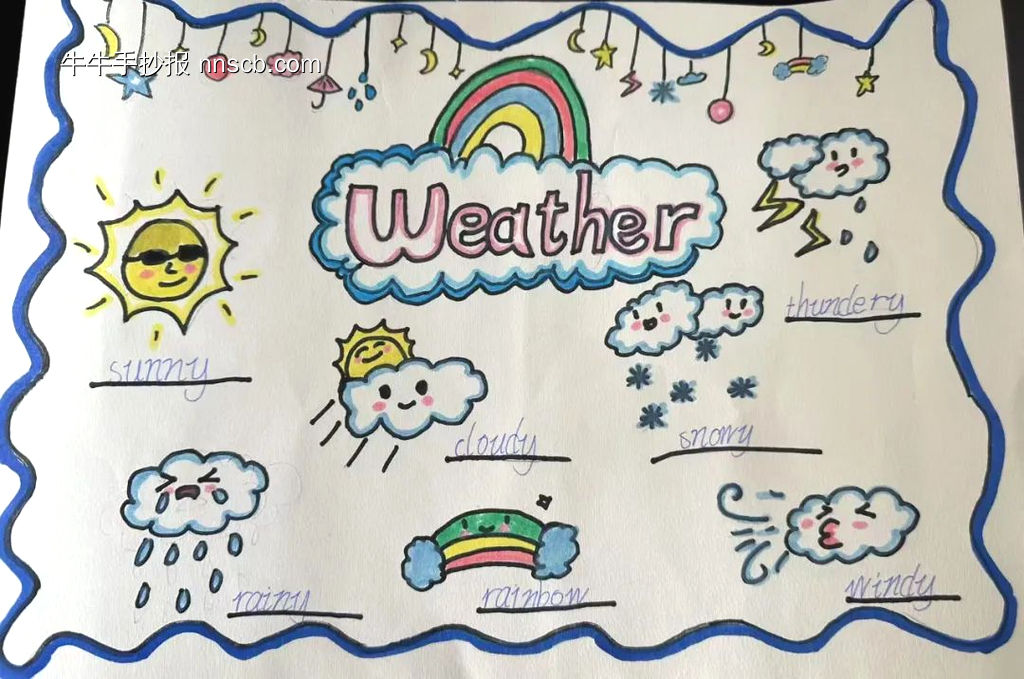 牛牛手抄报 nnscb.com
Weather
thundery
sunny
cloudy
snowy
rainy
rainbow
windy